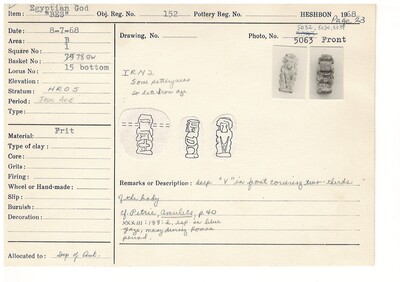 Egyptian God
Item: "BES" Obj. Reg. No. 152 Pottery Reg. No. HESHBON, 1968
Page 23
Date: 8-7-68
Area: B
Square No: 1
Basket No: 78
Locus No: 15 bottom
Elevation:
Stratum: HROS
Period: Iron Age
Type:
Drawing, No.
Photo No.
5063 Front
IRN2
Some pottery was
so late Iron age
Material: Frit
Type of clay:
Core:
Grits:
Firing:
Wheel or Hand-made:
Slip:
Burnish:
Decoration:
Remarks or Description: deep "V" in front covering two-thirds
of the body
cf. Petrie, Amulets, p. 40
XXXIII:188:2, esp. in blue
glaze, many during Roman
period.
Allocated to: Dep of Ant.